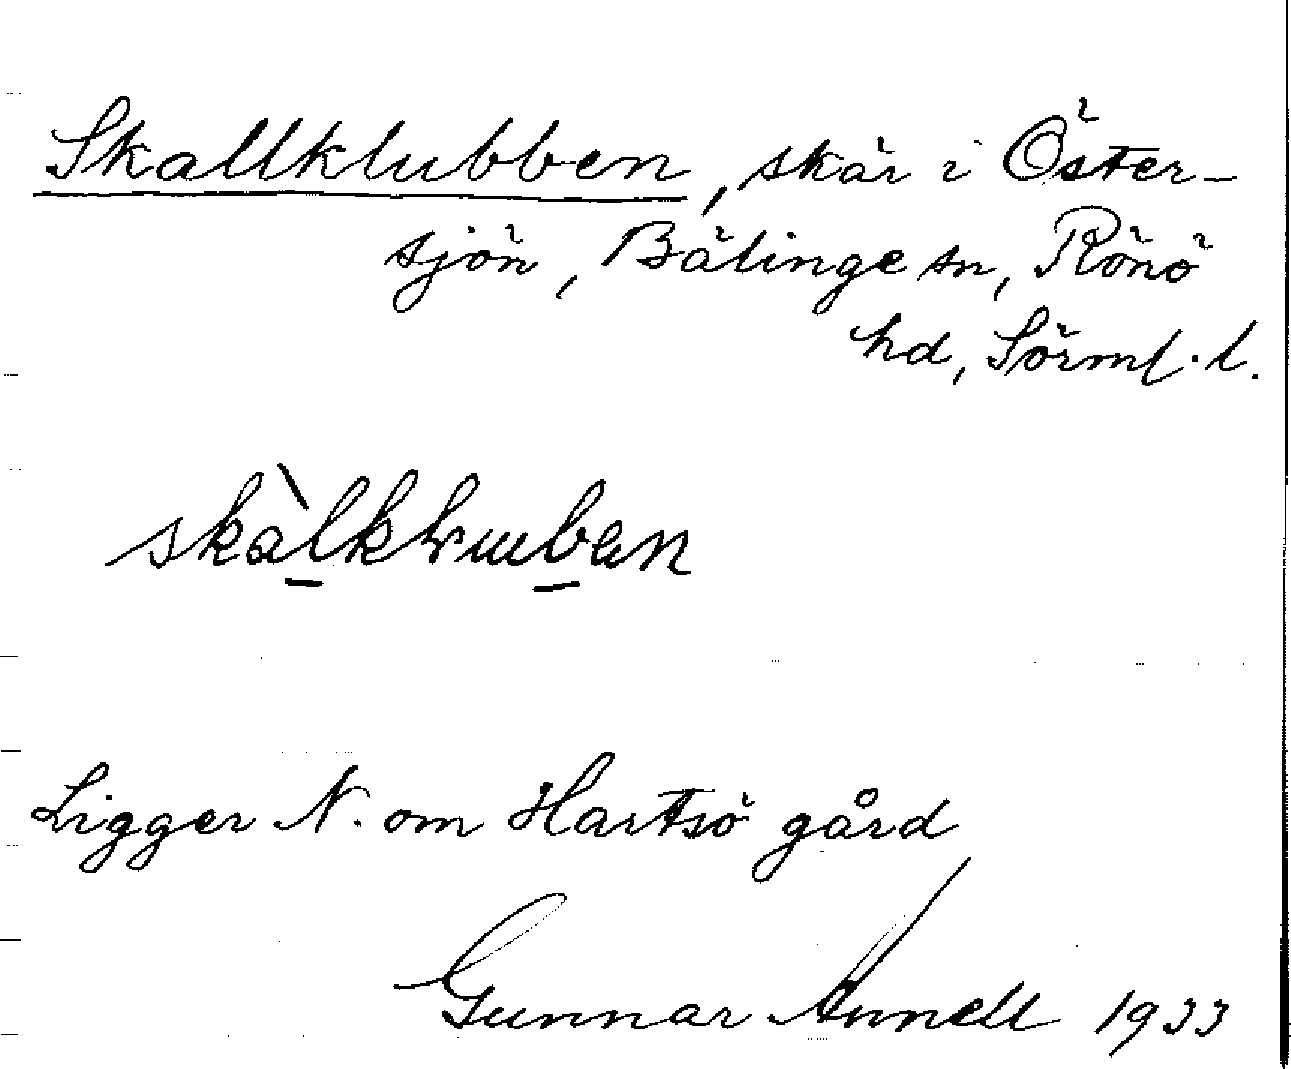 Skallklubben, skär i Öster-
sjön, Bälinge sn, Rönö
hd, Sörml. l.
Ligger N. om Hartsö gård
Gunnar Annell 1933